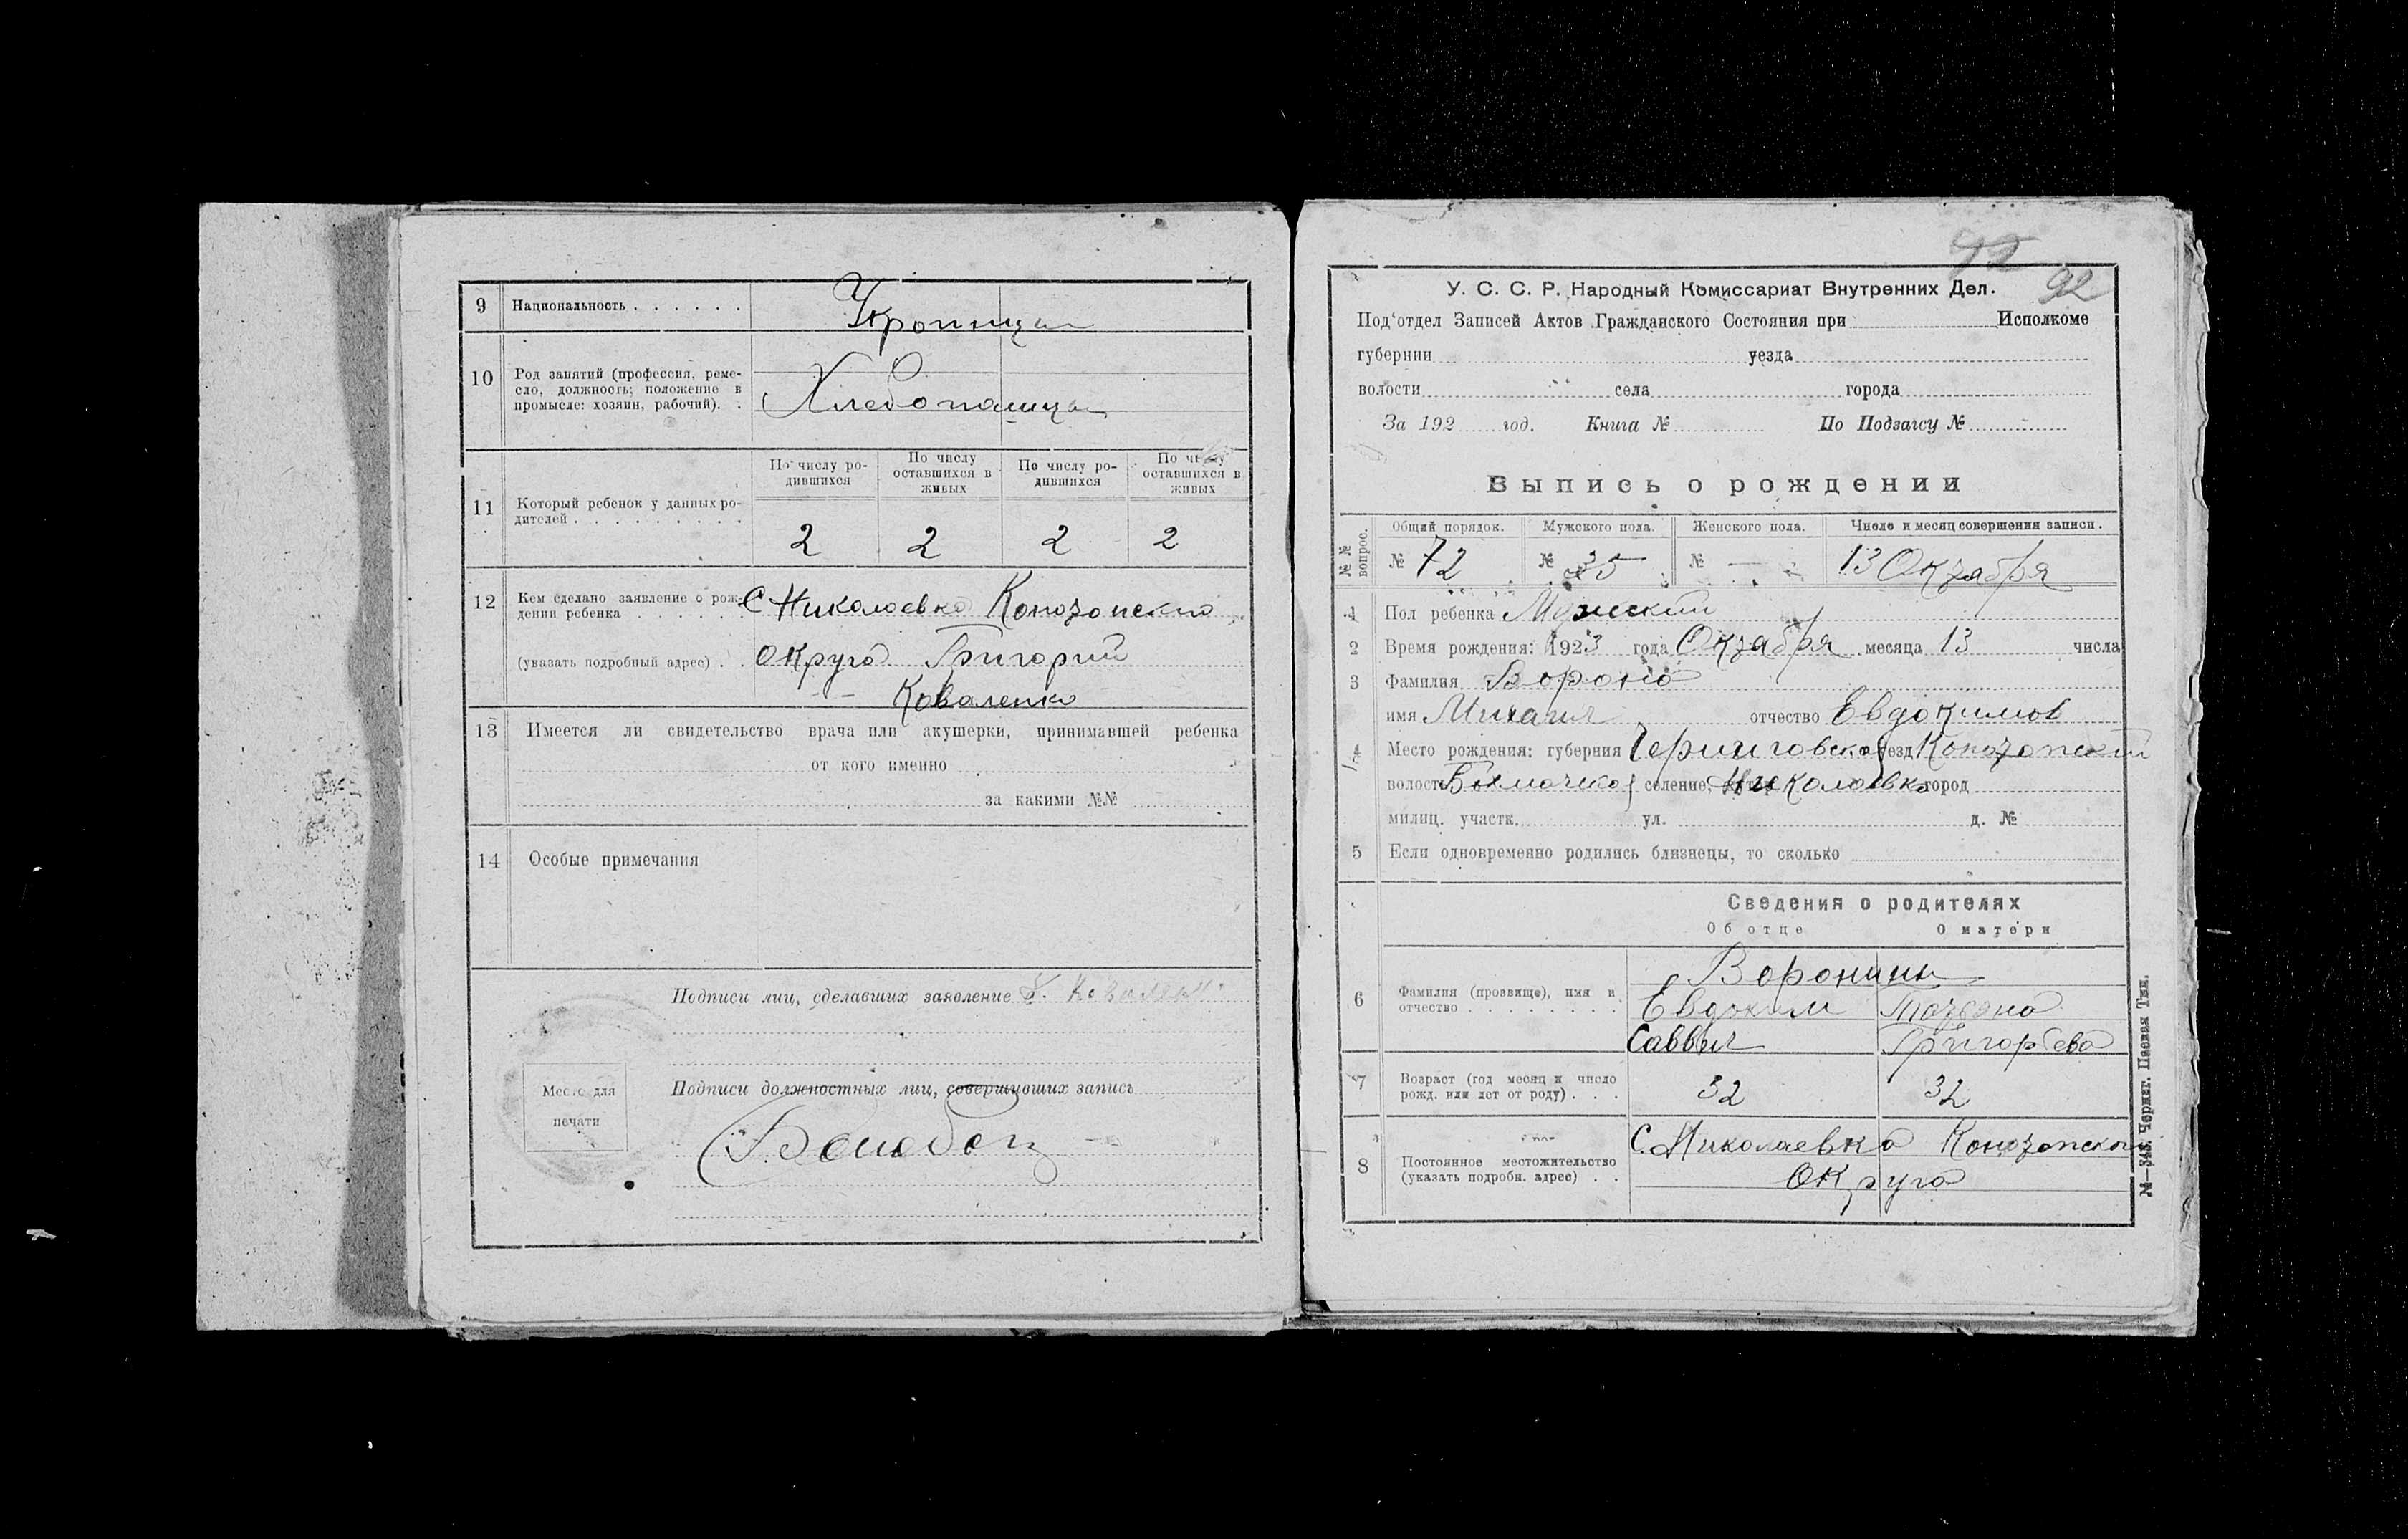 9 Национальность . . . . . . Украинцы
10 Род занятий (профессия, реме-
сло, должность; положение в
промысле: хозяин, рабочий). .
Хлебопашцы
11 Который ребенок у данных ро-
дителей . . . . . . . . .
По числу ро-
дившихся
По числу
оставшихся в
живых
По числу ро-
дившихся
По числу
оставшихся в
живых
2 2 2 2
12 Кем сделано заявление о рож-
дении ребенка . . . . . .
С Николаевка Конотопского
(указать подробный адрес) . . Округа Григорий
Коваленко
13 Имеется ли свидетельство врача или акушерки, принимавшей ребенка
от кого именно
за какими №№
14 Особые примечания
Подписи лиц, сделавших заявление
Место для
печати
Подписи должностных лиц, совершивших запись
92
92
У. С. С. Р. Народный Комиссариат Внутренних Дел.
Под‘отдел Записей Актов Гражданского Состояния при Исполкоме
губернии уезда
волости села города
За 192 год. Книга № По Подзагсу №
Выпись о рождении
№№ вопрос.
Общий порядок. Мужского пола. Женского пола. Число и месяц совершения записи.
№ 72 № 35 № — 13 Октября
1 Пол ребенка Мужский
2 Время рождения: 1923 года Октября месяца 13 числа
3 Фамилия Ворона
имя Михаил отчество Евдокимов
4 Место рождения: губерния Черниговская уезд Конотопский
волость Бахмачская селение, Николаевка город
милиц. участк. ул. д. №
5 Если одновременно родились близнецы, то сколько
Сведения о родителях
Об отце О матери
6 Фамилия (прозвище), имя и
отчество . . . . . . . .
Воронины
Евдоким Татьяна
Саввич Григорьева
7 Возраст (год месяц и число
рожд. или лет от роду) . . .
32 32
8 Постоянное местожительство
(указать подробн. адрес) . .
С. Николаевка Конотопского
Округа
№—343. Черниг. Паевая Тип.